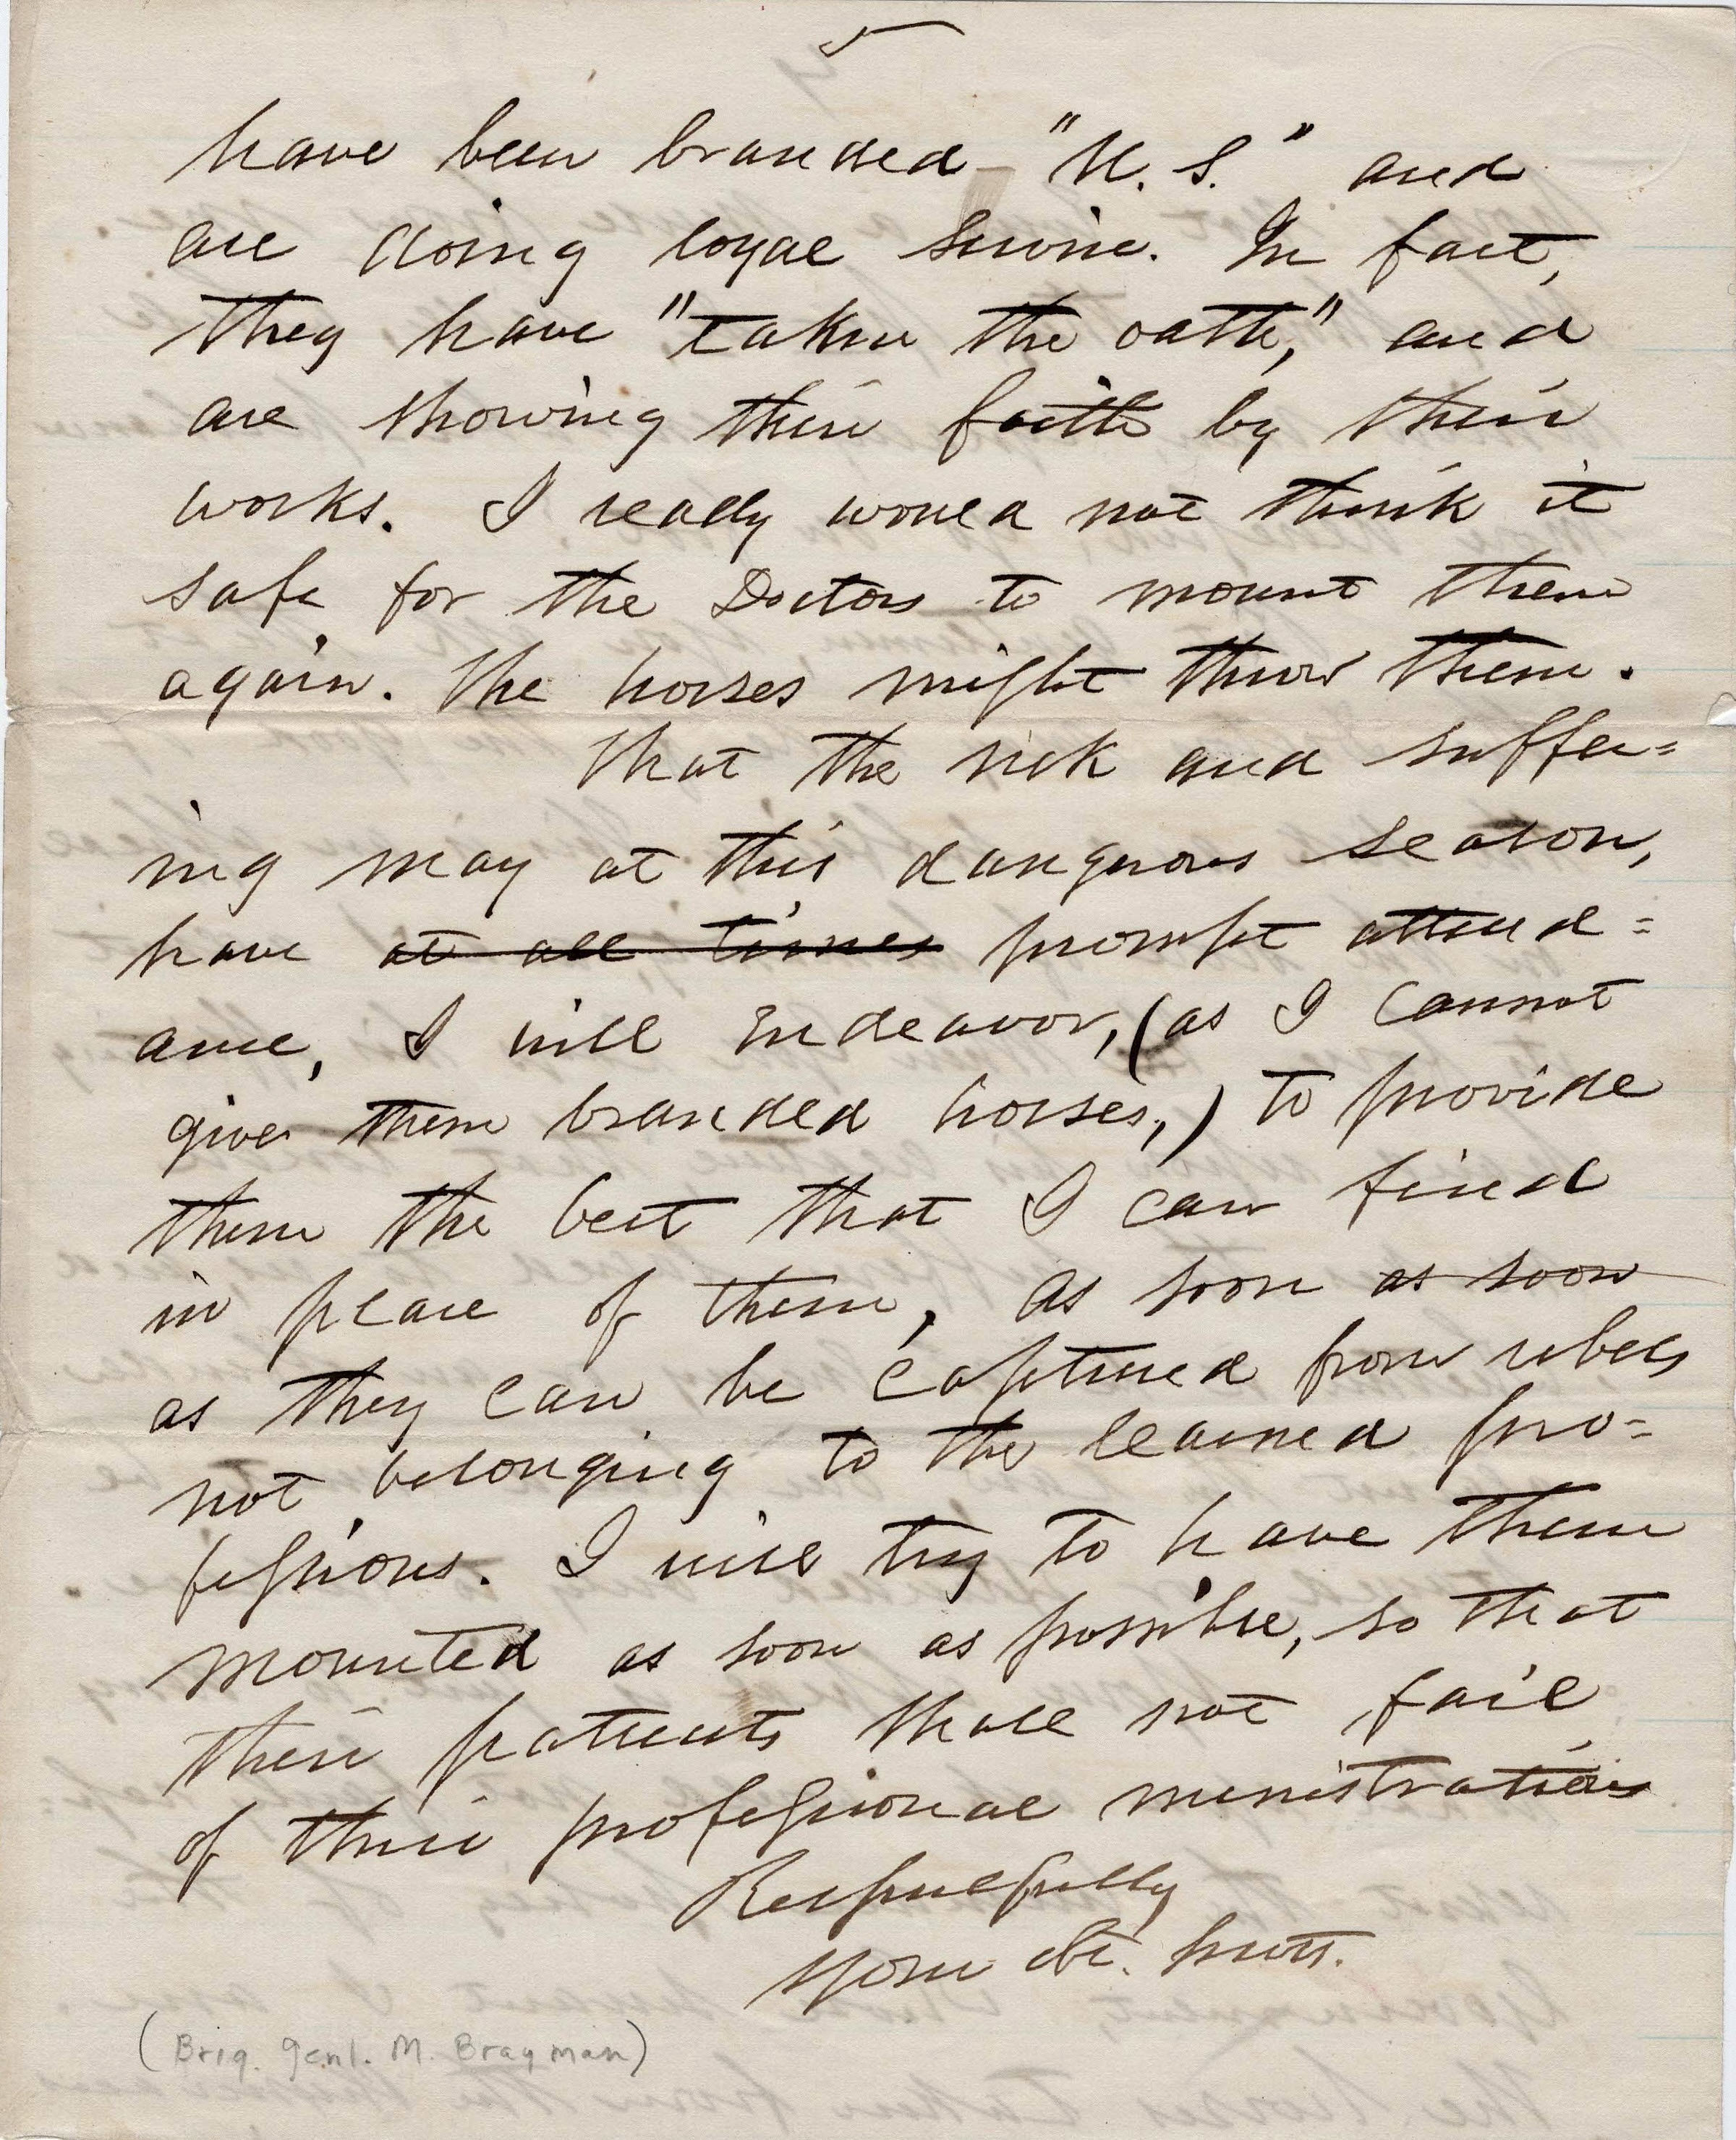 5
have been branded "U.S." and
are doing loyal service. In fact,
they have "taken the oath," and
are showing their faith by their
works. I really would not think it
safe for the Doctors to mount them
again. The horses might throw them.
That the sick and suffer=
ing may at this dangerous season,
have at all times prompt attend=
ance, I will endeavor, (as I cannot
give them branded horses,) to provide
them the best that I can find
in place of them, as soon as soon
as they can be captured from rebels
not belonging to the learned pro=
fessions. I will try to have them
mounted as soon as possible, so that
their patients shall not fail
of their professional ministrations
Respectfully
Your obt. servt.
(Brig. Genl. M. Brayman)